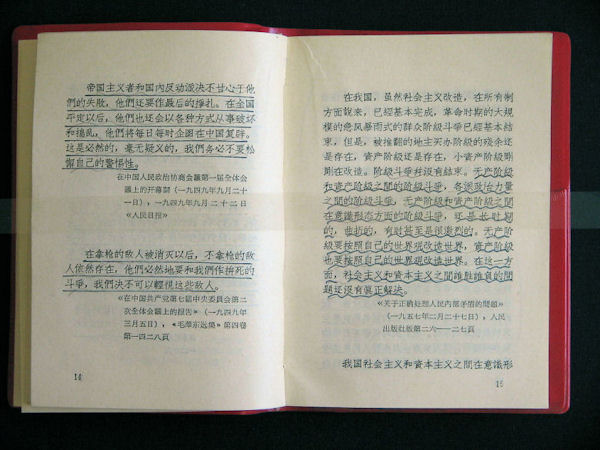 帝国主义者和国內反动派决不甘心于他
們的失敗，他們还要作最后的掙扎。在全国
平定以后，他們也还会以各种方式从事破坏
和搗乱，他們将每日每时企图在中国复辟。
这是必然的，毫无疑义的，我們务必不要松
懈自己的警惕性。
在中国人民政治协商会議第一届全体会
議上的开幕詞（一九四九年九月二十
一日），一九四九年九月二十二日
《人民日报》
在拿枪的敌人被消灭以后，不拿枪的敌
人依然存在，他們必然地要和我們作拚死的
斗爭，我們决不可以輕視这些敌人。
《在中国共产党第七届中央委員会第二
次全体会議上的报告》（一九四九年
三月五日），《毛澤东选集》第四卷
第一四二八頁
14
在我国，虽然社会主义改造，在所有制
方面說来，已經基本完成，革命时期的大規
模的急风暴雨式的群众阶級斗爭已經基本結
束，但是，被推翻的地主买办阶級的殘余还
是存在，資产阶級还是存在，小資产阶級刚
刚在改造。阶級斗爭幷沒有結束。无产阶級
和資产阶級之間的阶級斗爭，各派政治力量
之間的阶級斗爭，无产阶級和資产阶級之間
在意識形态方面的阶級斗爭，还是长时期
的，曲折的，有时甚至是很激烈的。无产阶
級要按照自己的世界观改造世界，資产阶級
也要按照自己的世界观改造世界。在这一方
面，社会主义和資本主义之間誰胜誰負的問
題还沒有眞正解决。
《关于正确处理人民內部矛盾的問題》
（一九五七年二月二十七日），人民
出版社版第二六——二七頁
我国社会主义和資本主义之間在意識形
15